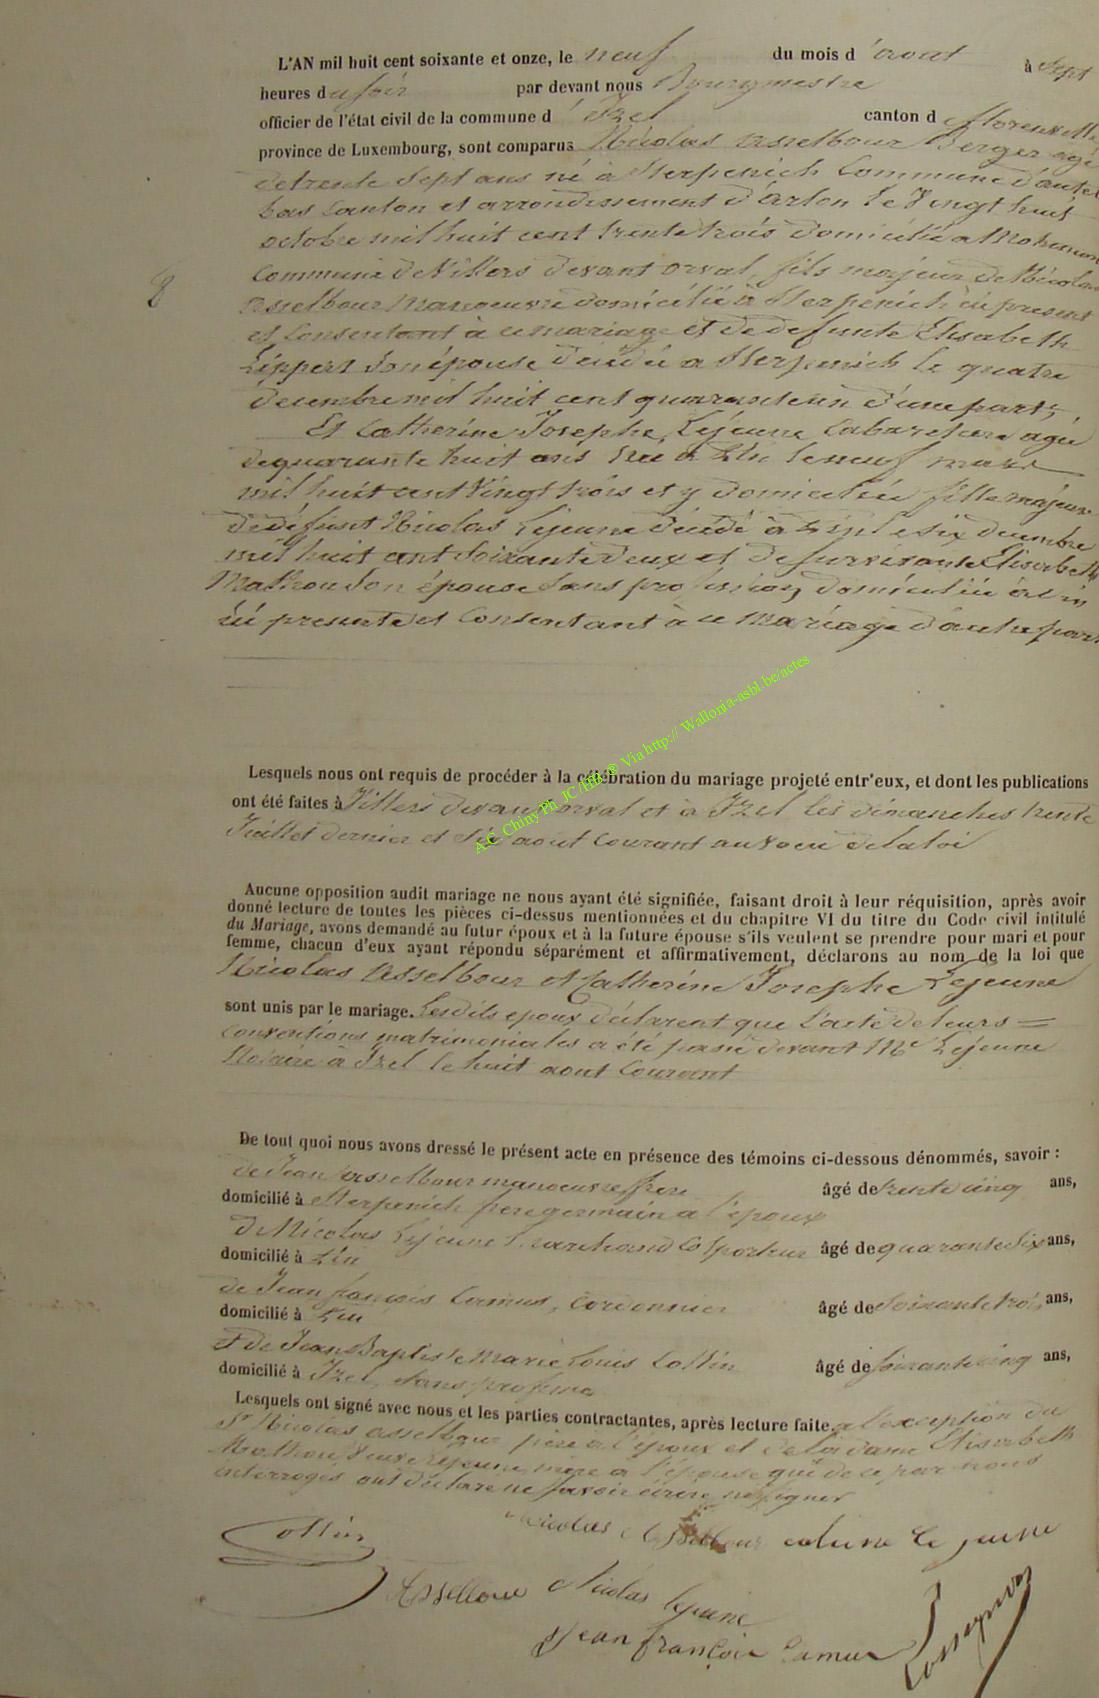 L'AN mil huit cent soixante et onze, le neuf du mois d'aout à sept
heures du soir par devant nous Bourgmestre
officier de l'état civil de la commune d'Izel canton de Florenville
province de Luxembourg, sont comparus Nicolas Asselbour Berger agé
de trente sept ans né à Sterpenich Commune d'autel
bas Canton et arrondissement d'Arlon le Vingt huit
octobre mil huit cent trente trois domicilié a
Commune de Villers devant orval, fils majeur de Nicolas
Asselbour Manoeuvre domicilié à Sterpenich ici présent
et Consentant à ce mariage et de defunte Elisabeth
Lippert son épouse décédée a Sterpenich le quatre
decembre mil huit cent quarante un d'une part,
Et Catherine Josephe Lejeune Cabaretiere agée
de quarante huit ans née à le neuf mars
mil huit cent Vingt trois et y domiciliée fille majeure
de défunt Nicolas Lejeune décédé à le six decembre
mil huit cent soixante deux et de survivante Elisabeth
Mathou son épouse sans profession domiciliée à
ici presente et Consentant à ce Mariage d'autre part
8
Lesquels nous ont requis de procéder à la célébration du mariage projeté entr'eux, et dont les publications
ont été faites à Villers devant orval et à Izel les dimanches trente
Juillet dernier et six aout Courant au voeu de la loi
A.C. Chiny Ph JC /HB ® Via http:// Wallonia-asbl.be/actes
Aucune opposition audit mariage ne nous ayant été signifiée, faisant droit à leur réquisition, après avoir
donné lecture de toutes les pièces ci-dessus mentionnées et du chapitre VI du titre du Code civil intitulé
du Mariage, avons demandé au futur époux et à la future épouse s'ils veulent se prendre pour mari et pour
femme, chacun d'eux ayant répondu séparément et affirmativement, déclarons au nom de la loi que
Nicolas Asselbour et Catherine Josephe Lejeune
sont unis par le mariage. Lesdits epoux déclarent que l'acte de leurs =
Conventions matrimoniales a été passé devant Me Lejeune
Notaire à Izel le huit aout Courant
De tout quoi nous avons dressé le présent acte en présence des témoins ci-dessous dénommés, savoir :
de Jean Asselbour manoeuvre frere âgé de trente cinq ans,
domicilié à Sterpenich germain a l'époux
de Nicolas Lejeune Marchand Colporteur âgé de quarante six ans,
domicilié à
de Jean françois Camus, Cordonnier âgé de Soixante trois ans,
domicilié à
et de Jean Baptiste Marie Louis Collin âgé de soixante cinq ans,
domicilié à Izel, sans
Lesquels ont signé avec nous et les parties contractantes, après lecture faite. a l'exception du
Sr Nicolas asselbour père à l'époux et de la dame Elisabeth
Mathou Veuve Lejeune mère a l'épouse qui de ce par nous
interrogés ont déclaré ne savoir écrire ni signer
Nicolas Asselbour le jeune
Collin
Asselbour Nicolas lejeune
Jean françois Camus